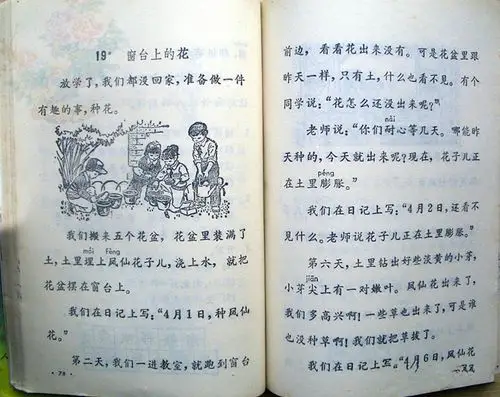 19* 窗台上的花
放学了,我们都没回家,准备做一件
有趣的事,种花。
我们搬来五个花盆,花盆里装满了
mái fèng
土,土里埋上凤仙花子儿,浇上水,就把
花盆摆在窗台上。
我们在日记上写:“4月1日,种凤仙
花。”
第二天,我们一进教室,就跑到窗台
·78·
前边,看看花出来没有。可是花盆里跟
昨天一样,只有土,什么也看不见。有个
同学说:“花怎么还没出来呢?”
nài
老师说:“你们耐心等几天。哪能昨
天种的,今天就出来呢?现在,花子儿正
péng
在土里膨胀。”
我们在日记上写:“4月2日,还看不
见什么。老师说花子儿正在土里膨胀。”
第六天,土里钻出好些淡黄的小芽,
jiān
小芽尖上有一对嫩叶。凤仙花出来了,
我们多高兴啊!一些草也出来了,可是谁
也没种草啊!我们就把草拔了。
我们在日记上写:“4月6日,凤仙花